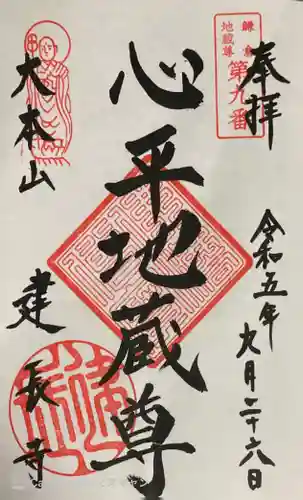 奉拝
鎌倉
地蔵尊
第九番
令和五年
九月二十六日
心平地蔵尊
大本山
建長寺